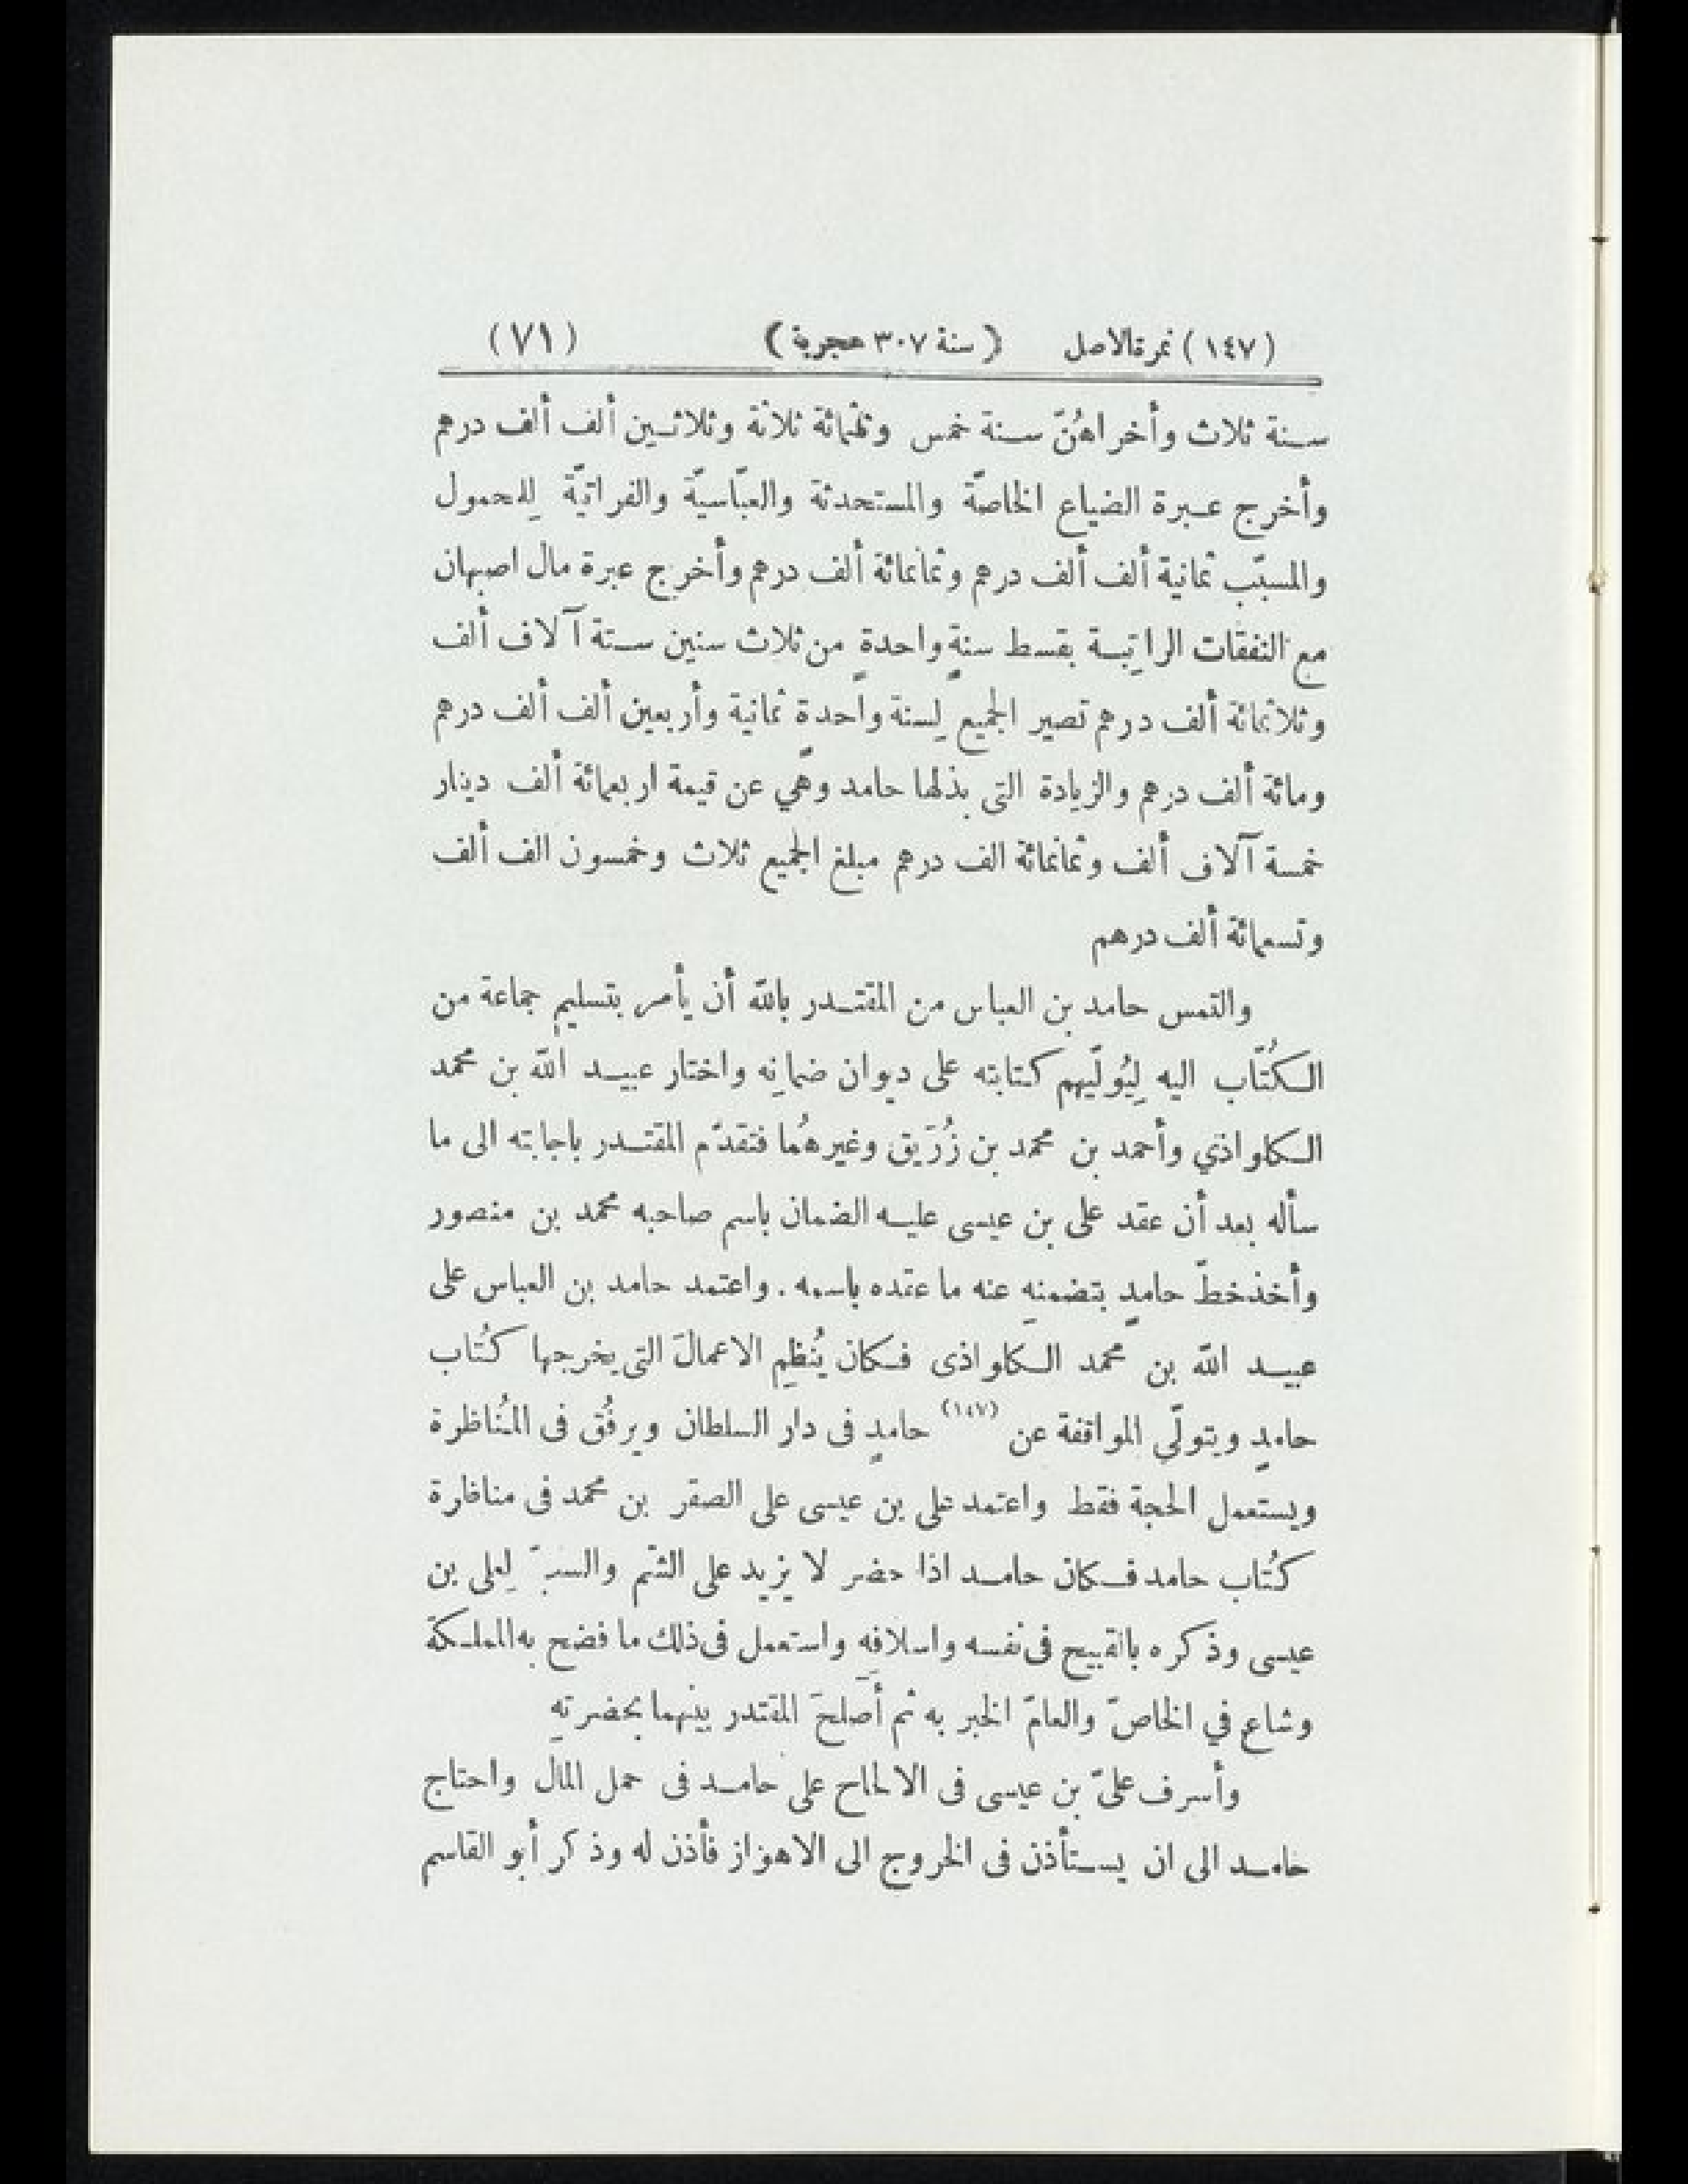 (١٤٧) نمرة الاصل (سنة ٣٠٧ هجرية) (٧١)
سنة ثلاث وأخراهُنّ سنة خمس وثلثمائة ثلاثة وثلاثين ألف ألف درهم
وأخرج عبرة الضياع الخاصّة والمستحدثة والعبّاسيّة والفراتيّة لِلحمول
والمسبّب ثمانية ألف ألف درهم وثمانمائة ألف درهم وأخرج عبرة مال اصبهان
مع النفقات الراتِبة بقسط سنةٍ واحدةٍ من ثلاث سنين ستة آلاف ألف
وثلاثمائة ألف درهم تصير الجميع لِسنة واحدةٍ ثمانية وأربعين ألف ألف درهم
ومائة ألف درهم والزيادة التى بذلها حامد وهي عن قيمة اربعمائة ألف دينار
خمسة آلاف ألف وثمانمائة الف درهم مبلغ الجميع ثلاث وخمسون الف ألف
وتسعمائة ألف درهم
والتمس حامد بن العباس من المقتدر باللّه أن يأمر بتسليمِ جماعة من
الكُتّاب اليه لِيُولّيهم كتابته على ديوان ضمانِه واختار عبيد اللّه بن محمد
الكلواذي وأحمد بن محمد بن زُرَيق وغيرهُما فتقدّم المقتدر باجابته الى ما
سأله بعد أن عقد على بن عيسى عليه الضمان باسم صاحبه محمد بن منصور
وأخذ خطّ حامدٍ بتضمنِه عنه ما عقده باسمه. واعتمد حامد بن العباس على
عبيد اللّه بن محمد الكلواذى فكان يُنظِم الاعمالَ التى يخرجها كُتاب
حامدٍ ويتولّي المواقفة عن (١٤٧) حامدٍ فى دار السلطان ويرفُق فى المُناظرة
ويستعمل الحجة فقط واعتمد على بن عيسى على الصقر بن محمد فى مناظرة
كُتاب حامد فكان حامد اذا حضر لا يزيد على الشتم والسبّ لِعلى بن
عيسى وذكره بالقبيح فى نفسه واسلافِه واستعمل فى ذلك ما فضح به المملكة
وشاع في الخاصّ والعامّ الخبر به ثم أَصلحَ المقتدر بينهما بحضرتهِ
وأسرف علىّ بن عيسى فى الالحاح على حامد فى حمل المال واحتاج
حامد الى ان يستأذن فى الخروج الى الاهواز فأذن له وذكر أبو القاسم